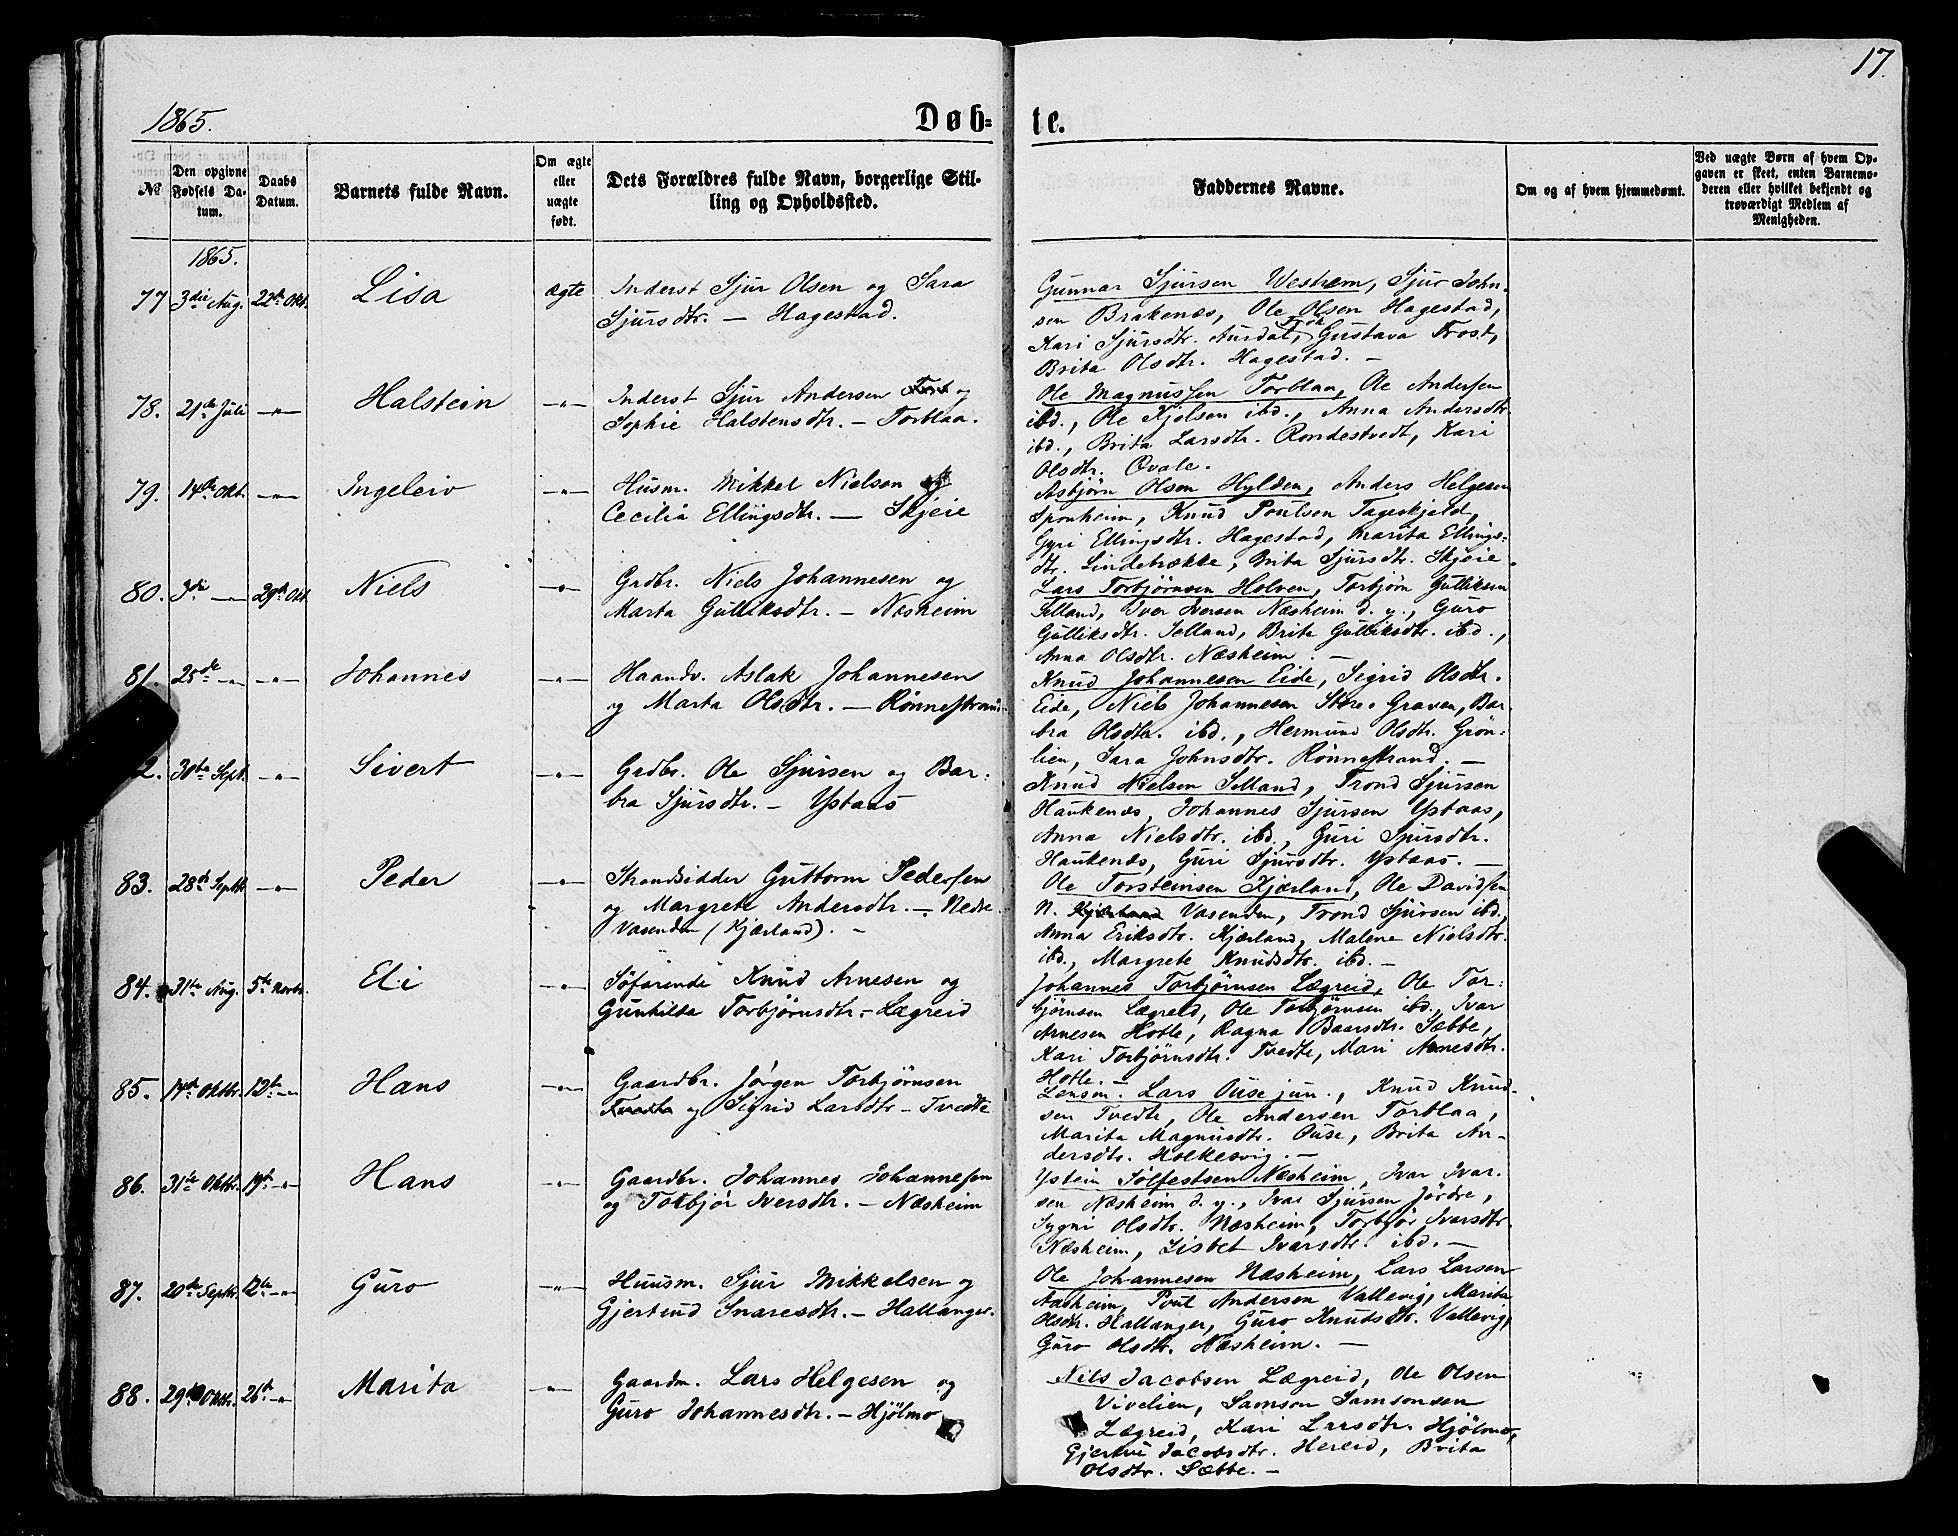 17.
1865.
Døb-
te.
№
Den opgivne Fødsels Da-tum.
Daabs Datum.
Barnets fulde Navn.
Om ægte eller uægte født.
Dets Forældres fulde Navn, borgerlige Stil-
ling og Opholdssted.
Faddernes Navne.
Om og af hvem hjemmedøbt.
Ved uægte Børn af hvem Op-
gaven er skeet, enten Barnemo-
deren eller hvilket bekjendt og
troværdigt Medlem af
Menigheden.
1865.
77 3die Aug. 22de Okt. Lisa ægte Inderst Sjur Olsen og Sara
Sjursdtr. — Hagestad.
Gunnar Sjursen Westrem, Sjur John-
sen Brakenæs, Ole Olsen Hagestad,
Kari Sjursdtr. Aurdal, Gustava Trost,
Brita Olsdtr. Hagestad. —
78. 21de Juli —"— Halstein —"— Inderst Sjur Andersen og
Sophie Halstensdtr. — Torblaa.
Ole Magnussen Torblaa, Ole Andersen
ibd., Ole Kjelsen ibd., Anna Andersdtr.
ibd., Brita Larsdtr. Rondestvedt, Kari
Olsdtr. Qvale.
79. 14de Okt. —"— Ingeleiv —"— Husm. Mikkel Nielsen og
Cecilia Ellingsdtr. — Skjeie
Asbjørn Olsen Hylden, Anders Helgesen
Sponheim, Knud Poulsen Tageskjeld,
Gyri Ellingsdtr. Hagestad, Marita Ellings-
dtr. Lindebrække, Brita Sjursdtr. Skjeie.
80. 3die —"— 29de Okt Niels —"— Grdbr. Niels Johannesen og
Marta Gulliksdtr. — Næsheim
Lars Torbjørnsen Holven, Torbjørn Gulliksen
Selland, Iver Iversen Næsheim d. y., Guro
Gulliksdtr. Selland, Brita Gulliksdtr. ibd.,
Anna Olsdtr. Næsheim. —
81. 25de —"— —"— Johannes —"— Haandv. Aslak Johannesen
og Marta Olsdtr. — Rønnestrand
Knud Johannesen Eide, Sigrid Olsdtr.
Eide, Niels Johannesen Store-Graven, Bar-
bra Olsdtr. ibd., Hermund Olsdtr. Grøn-
lien, Sara Johnsdtr. Rønnestrand. —
2. 30te Sept. —"— Sivert —"— Grdbr. Ole Sjursen og Bar-
bra Sjursdtr. — Ystaas
Knud Nielsen Selland, Trond Sjursen
Haukenæs, Johannes Sjursen Ystaas,
Anna Nielsdtr. ibd., Guri Sjursdtr.
Haukenæs, Guri Sjursdtr. Ystaas. —
83. 28de Septbr. —"— Peder —"— Strandsidder Guttorm Pedersen
og Margrete Andersdtr. — Nedre
Vasenden (Kjærland). —
Ole Torsteinsen Kjærland, Ole Davidsen
N. Kjærland Vasenden, Trond Sjursen ibd.,
Anna Eriksdtr. Kjærland, Malene Nielsdtr.
ibd., Margrete Knudsdtr. ibd. —
84. 31te Aug. 5te Novbr. Eli —"— Søfarende Knud Arnesen og
Gunhilda Torbjørnsdtr. — Lægreid
Johannes Torbjørnsen Lægreid, Ole Tor-
bjørnsen Lægreid, Ole Torbjørnsen ibd., Ivar
Arnesen Hotle, Ragna Baarsdtr. Sæbbe,
Kari Torbjørnsdtr. Tvedte, Mari Arnesdtr.
Hotle. —
85. 17de Oktbr. 12te —"— Hans —"— Gaardbr. Jørgen Torbjørnsen
Tvedte og Sigrid Larsdtr — Tvedte
Lensm. Lars Ouse jun., Knud Knud-
sen Tvedte, Ole Andersen Torblaa,
Marita Magnusdtr. Ouse, Brita An-
dersdtr. Holkesvig. —
86. 31te Oktbr. 19de —"— Hans —"— Gaardbr. Johannes Johannesen
og Torbjør Iversdtr. — Næsheim
Ystein Solfestsen Næsheim, Ivar Ivar-
sen Næsheim d. y., Ivar Sjursen Jørdre,
Sygni Olsdtr. Næsheim, Torbjør Ivarsdtr.
Næsheim, Lisbet Ivarsdtr. ibd. —
87. 20de Septbr. 12te —"— Guro —"— Huusm. Sjur Mikkelsen og
Gjertrud Snaresdtr. — Hallanger.
Ole Johannesen Næsheim, Lars Larsen
Aasheim, Poul Andersen Vallevig, Marita
Olsdtr. Hallanger, Guro Knutsdtr. Vallevig,
Guro Olsdtr. Næsheim. —
88. 29de Oktbr. 26de —"— Marita —"— Gaardm. Lars Helgesen og
Guro Johannesdtr. — Hjølmo
Nils Jacobsen Lægreid, Ole Olsen
Vivelien, Samson Samsonsen
Lægreid, Kari Larsdtr. Hjølmo,
Gjertru Jacobsdtr. Hereid, Brita
Olsdtr. Sæbbe. —